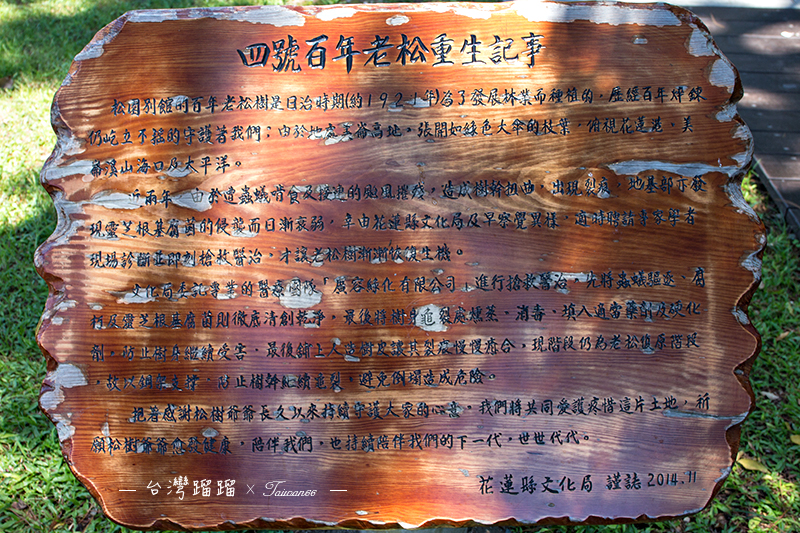 四號百年老松重生記事
松園別館的百年老松樹是日治時期(約1921年)為了發展林業而種植的，歷經百年焠鍊
仍屹立不搖的守護著我們；由於地處美崙高地，張開如綠色大傘的枝葉，俯視花蓮港、美
崙溪出海口及太平洋。
近兩年，由於遭蟲蟻啃食及慢速的颱風摧殘，造成樹幹扭曲，出現裂痕，地基部亦發
現靈芝根基腐菌的侵襲而日漸衰弱，幸由花蓮縣文化局及早察覺異樣，適時聘請專家學者
現場診斷並即刻搶救醫治，才讓老松樹漸漸恢復生機。
文化局委託專業的醫療團隊「廣容綠化有限公司」進行搶救醫治。先將蟲蟻驅逐、腐
朽及靈芝根基腐菌則徹底清創乾淨，最後將樹身龜裂處燻蒸、消毒、填入適當藥劑及硬化
劑，防止樹身繼續受害，最後鋪上人造樹皮讓其裂痕慢慢癒合，現階段仍為老松復原階段
，故以鋼架支撐，防止樹幹繼續龜裂，避免倒塌造成危險。
抱著感謝松樹爺爺長久以來持續守護大家的心意，我們將共同愛護疼惜這片土地，祈
願松樹爺爺愈發健康，陪伴我們，也持續陪伴我們的下一代，世世代代。
花蓮縣文化局 謹誌 2014.11
台灣蹓蹓 × Taiwan66